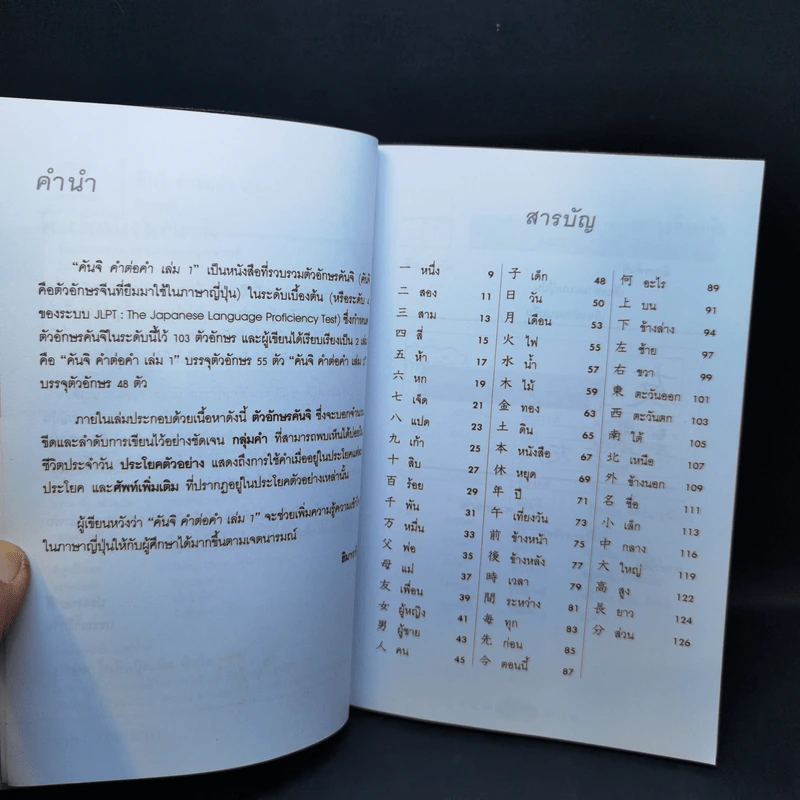 คำนำ
"คันจิ คำต่อคำ เล่ม 1" เป็นหนังสือที่รวบรวมตัวอักษรคันจิ
คือตัวอักษรจีนที่ยืมมาใช้ในภาษาญี่ปุ่น) ในระดับเบื้องต้น (หรือระดับ
ของระบบ JLPT : The Japanese Language Proficiency Test) ซึ่งกำหนด
ตัวอักษรคันจิในระดับนี้ไว้ 103 ตัวอักษร และผู้เขียนได้เรียบเรียงเป็น 2 เล่ม
คือ "คันจิ คำต่อคำ เล่ม 1" บรรจุตัวอักษร 55 ตัว "คันจิ คำต่อคำ เล่ม
บรรจุตัวอักษร 48 ตัว
ภายในเล่มประกอบด้วยเนื้อหาดังนี้ ตัวอักษรคันจิ ซึ่งจะบอกจำนวน
ขีดและลำดับการเขียนไว้อย่างชัดเจน กลุ่มคำ ที่สามารถพบเห็นได้บ่อย
ชีวิตประจำวัน ประโยคตัวอย่าง แสดงถึงการใช้คำเมื่ออยู่ในประโยค
ประโยค และศัพท์เพิ่มเติม ที่ปรากฏอยู่ในประโยคตัวอย่างเหล่านั้น
ผู้เขียนหวังว่า "คันจิ คำต่อคำ เล่ม 1" จะช่วยเพิ่มความรู้ความ
ในภาษาญี่ปุ่นให้กับผู้ศึกษาได้มากขึ้นตามเจตนารมณ์
สารบัญ
一 หนึ่ง 9
二 สอง 11
三 สาม 13
四 สี่ 15
五 ห้า 17
六 หก 19
七 เจ็ด 21
八 แปด 23
九 เก้า 25
十 สิบ 27
百 ร้อย 29
千 พัน 31
万 หมื่น 33
父 พ่อ 35
母 แม่ 37
友 เพื่อน 39
女 ผู้หญิง 41
男 ผู้ชาย 43
人 คน 45
子 เด็ก 48
日 วัน 50
月 เดือน 53
火 ไฟ 55
水 น้ำ 57
木 ไม้ 61
金 ทอง 63
土 ดิน 65
本 หนังสือ 67
休 หยุด 69
年 ปี 71
午 เที่ยงวัน 73
前 ข้างหน้า 75
後 ข้างหลัง 77
時 เวลา 79
間 ระหว่าง 81
毎 ทุก 83
先 ก่อน 85
今 ตอนนี้ 87
何 อะไร 89
上 บน 91
下 ข้างล่าง 94
左 ซ้าย 97
右 ขวา 99
東 ตะวันออก 101
西 ตะวันตก 103
南 ใต้ 105
北 เหนือ 107
外 ข้างนอก 109
名 ชื่อ 111
小 เล็ก 113
中 กลาง 116
大 ใหญ่ 119
高 สูง 122
長 ยาว 124
分 ส่วน 126